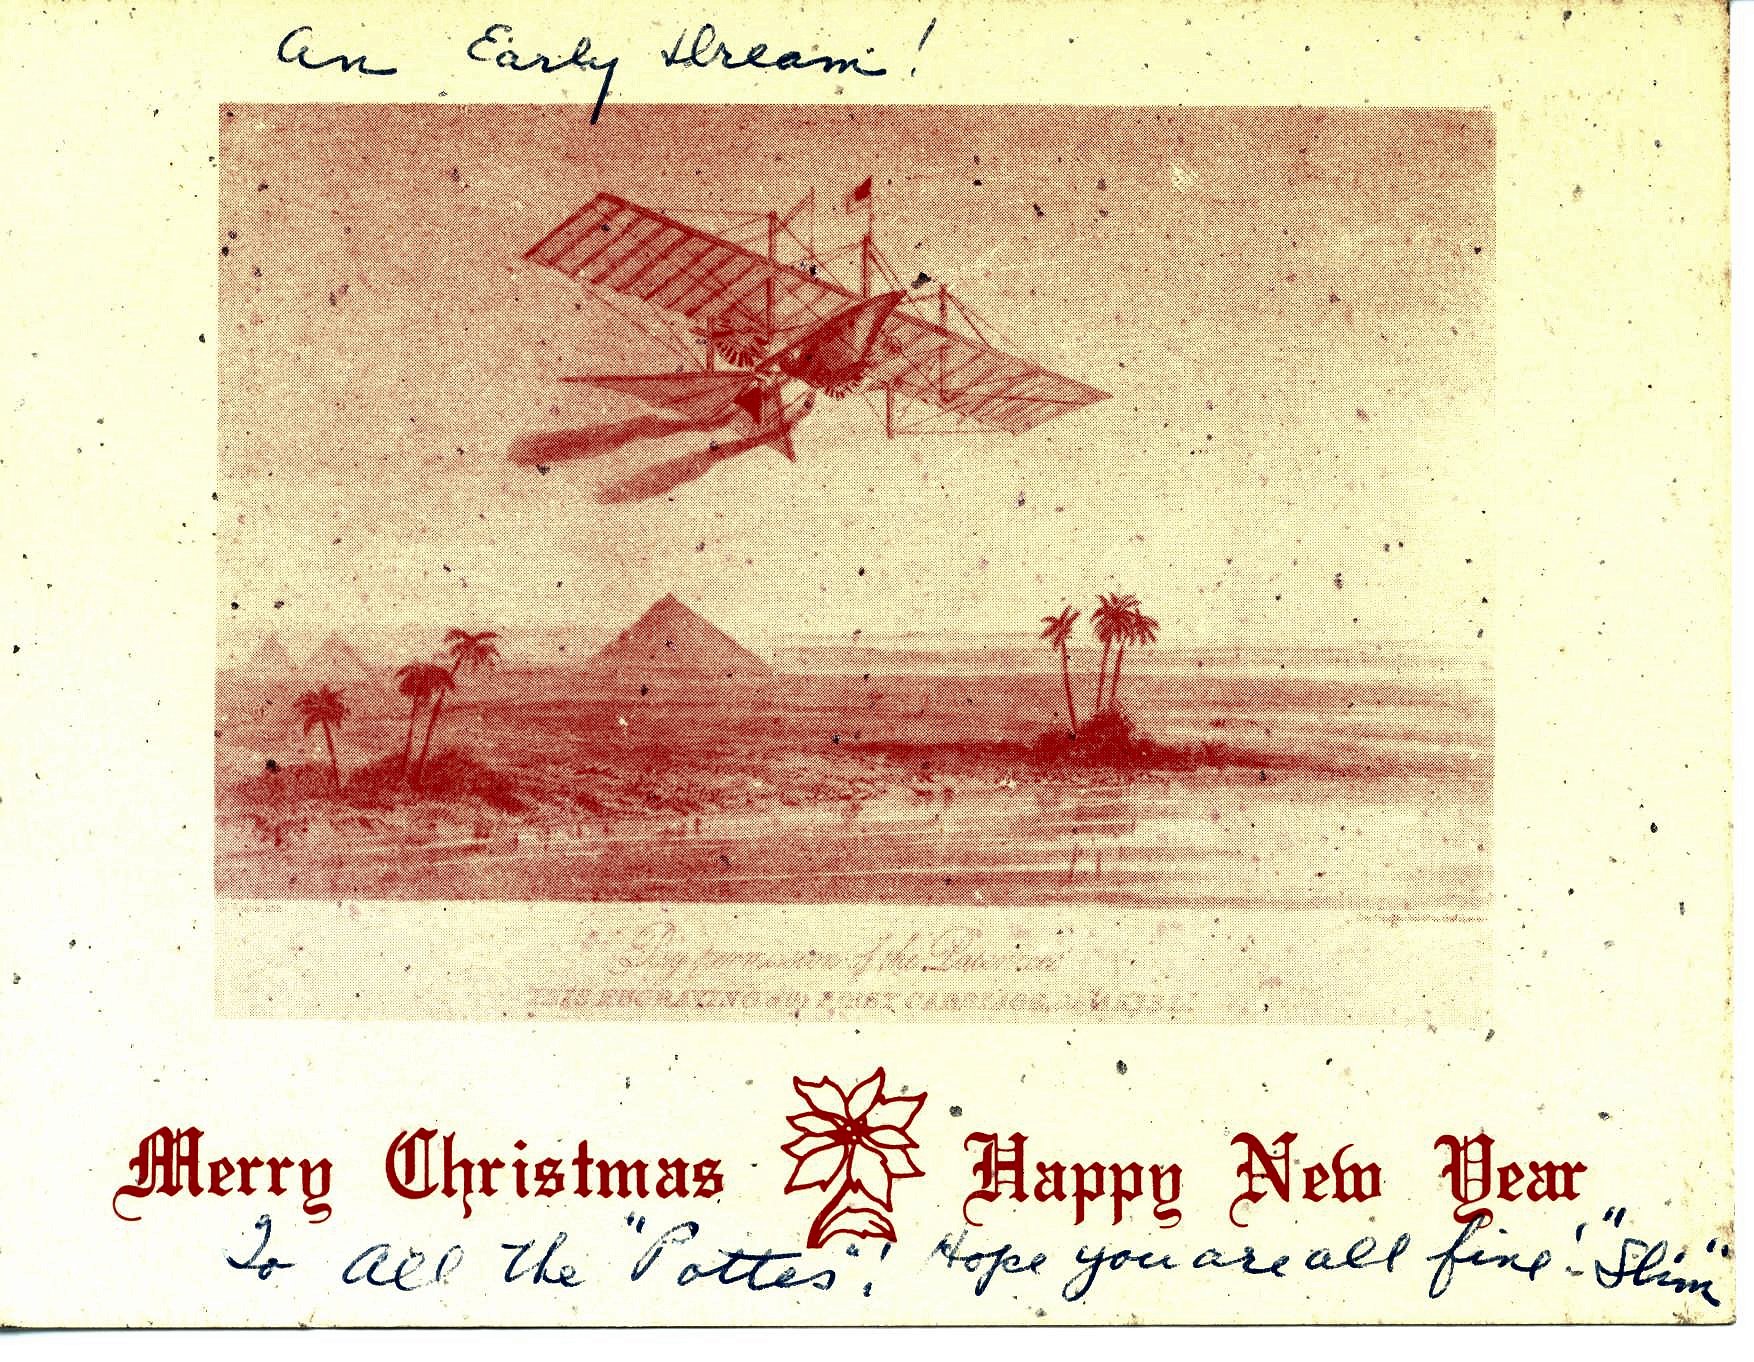 An Early Dream!
By permission of the Patentees
THIS ENGRAVING OF
Merry Christmas Happy New Year
To All The "Pottes"! Hope you are all fine! - "Slim"